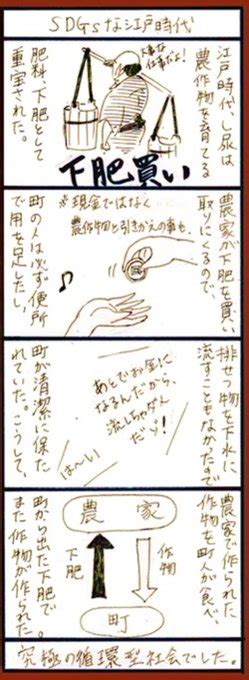 SDGsな江戸時代
江戸時代、し尿は
農作物を育てる
大事な
仕事だよ!
肥料、下肥として
重宝された。
下肥買い
農家が下肥を買い
取りにくるので、
※現金ではなく
農作物と引きかえの事も。
町の人は必ず便所
で用を足したし、
排せつ物を下水に
流すこともなかったので
あとでお金に
なるんだから、
流しちゃダメ
だよ!
は〜い
町が清潔に保た
れていた。こうして、
農家で作られた
作物を町人が食べ、
農家
下肥
作物
町
町から出た下肥で
また作物が作られた。
究極の循環型社会でした。